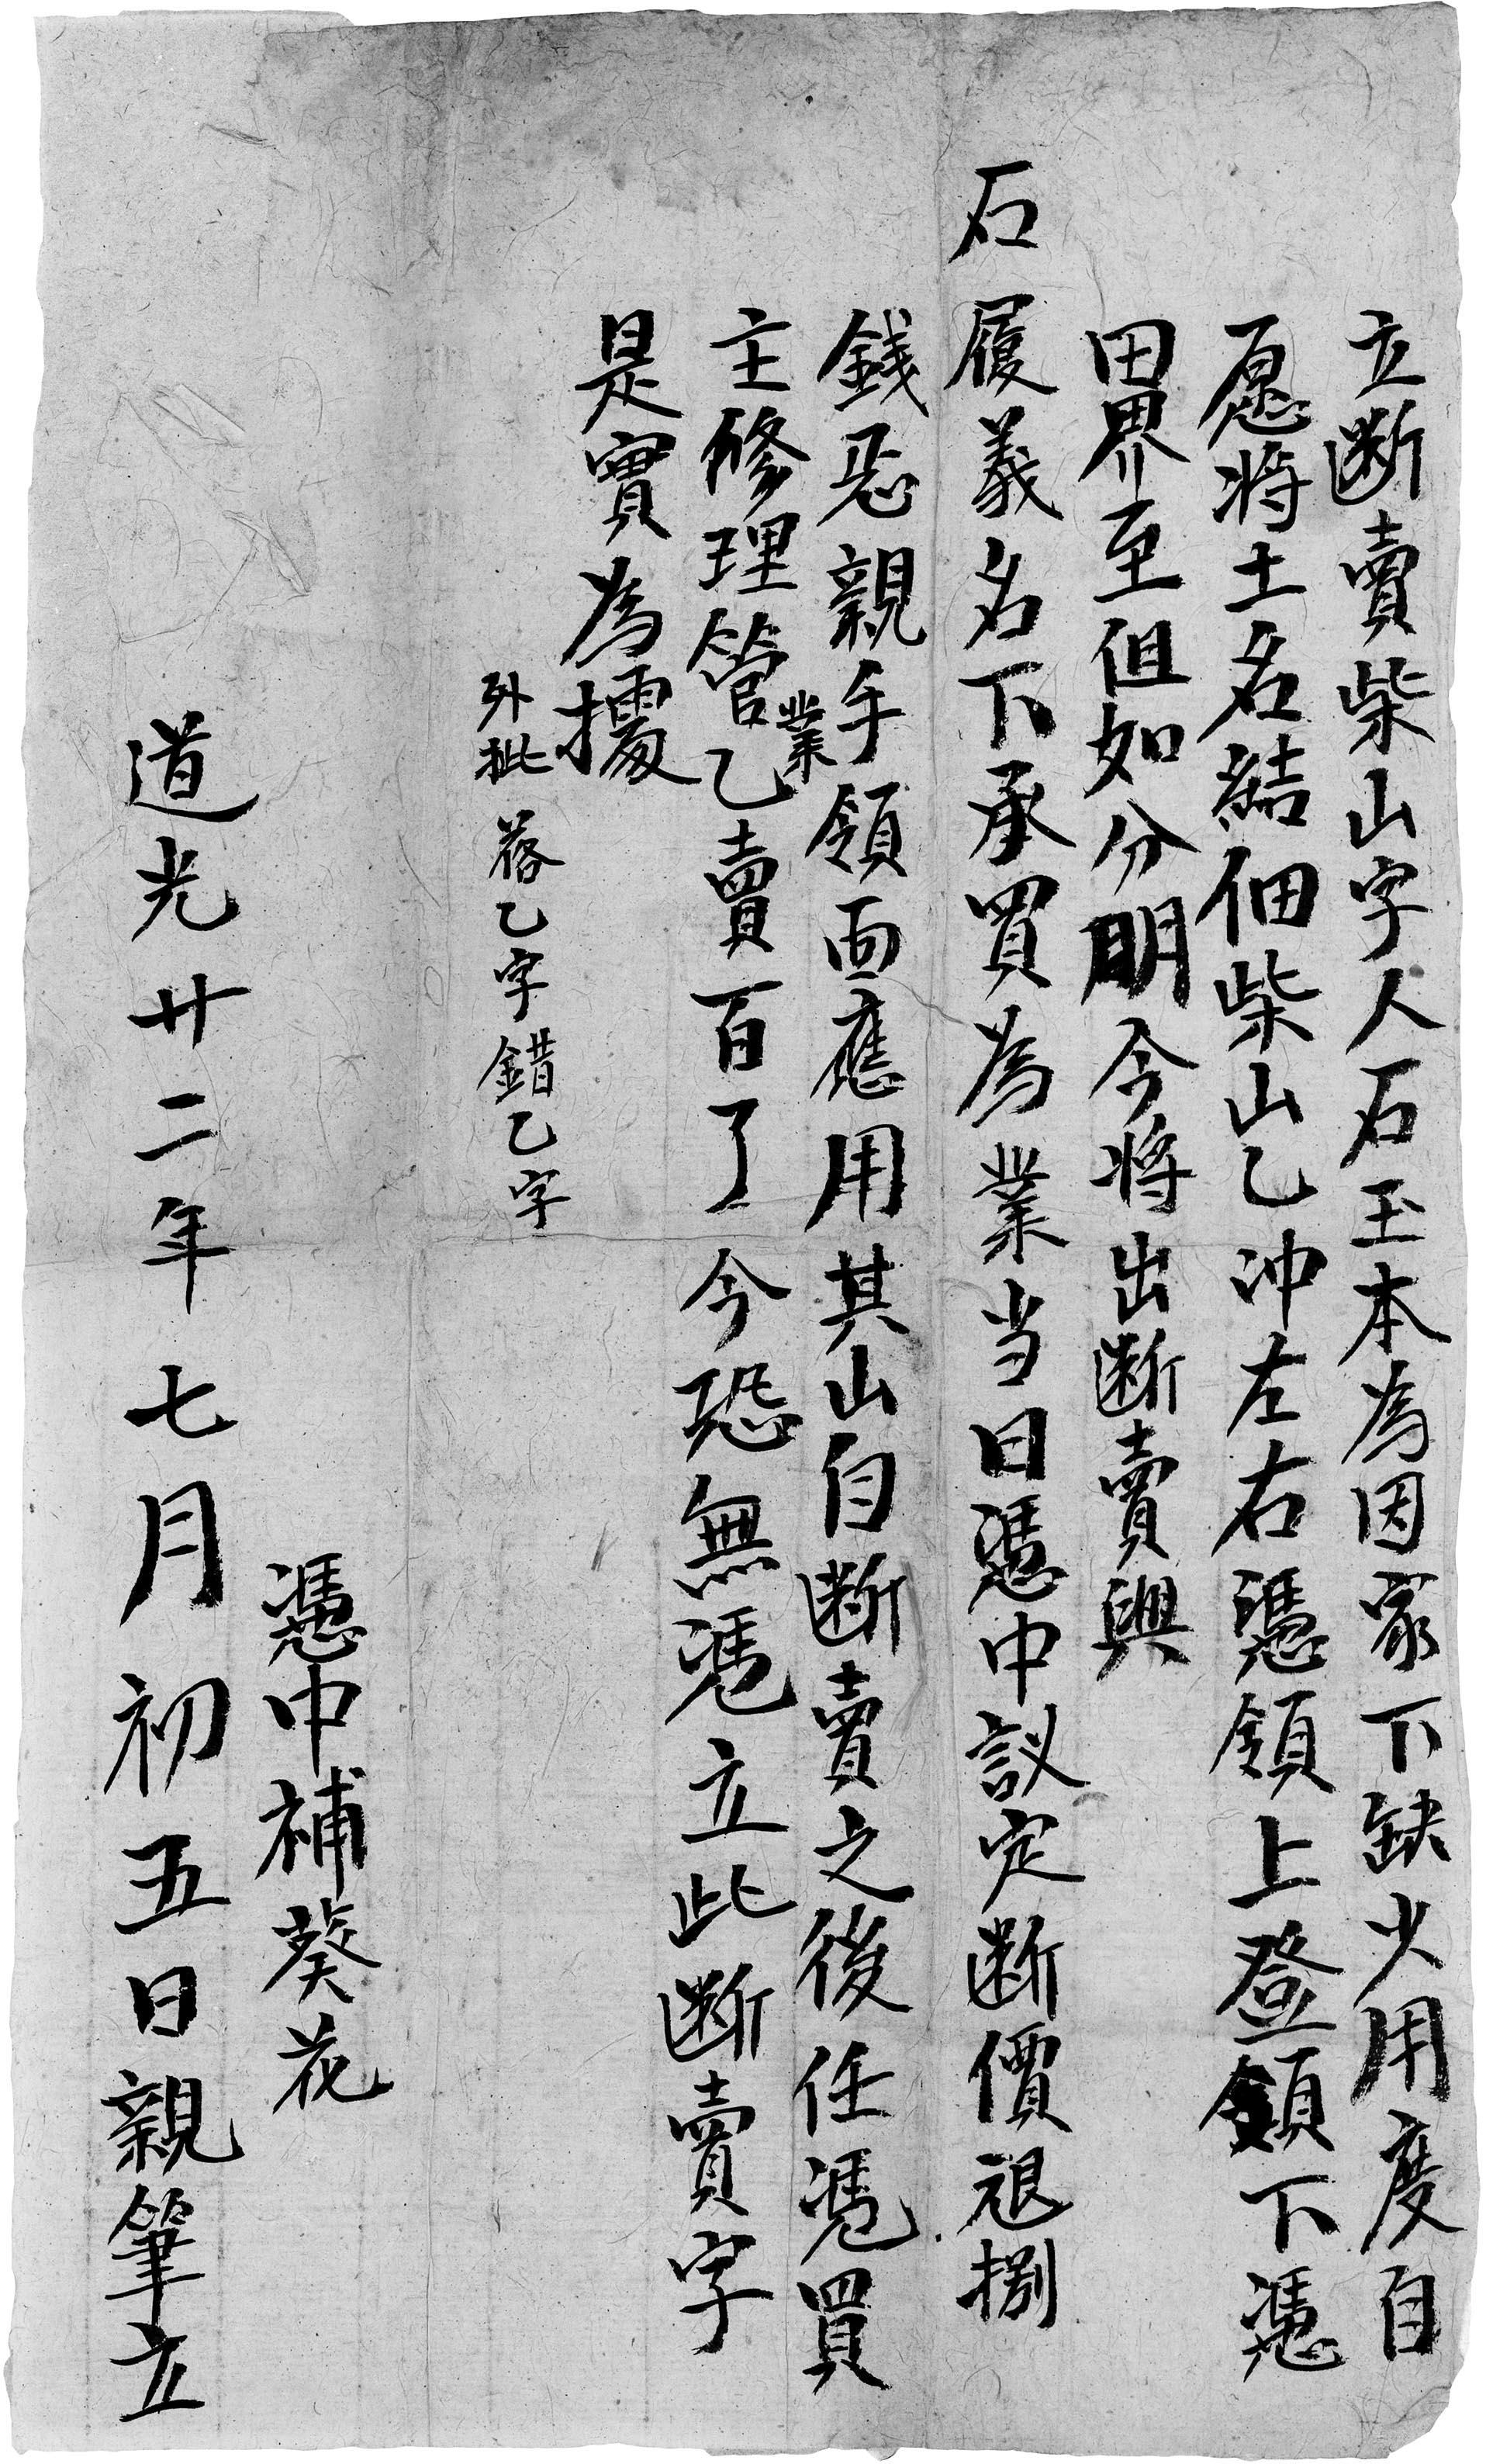 立断賣柴山字人石玉本為因家下缺少用度自
愿将土名結佃柴山乙冲左右憑領上登領下憑
田界至但如分明今将出断賣與
石履義名下承買為業当日憑中議定断價退捌
錢悉親手領面應用其山自断賣之後任凴買
主修理管業乙賣百了今恐無凴立此断賣字
是實為據
外批落乙字錯乙字
憑中補葵花
道光廿二年七月初五日親筆立